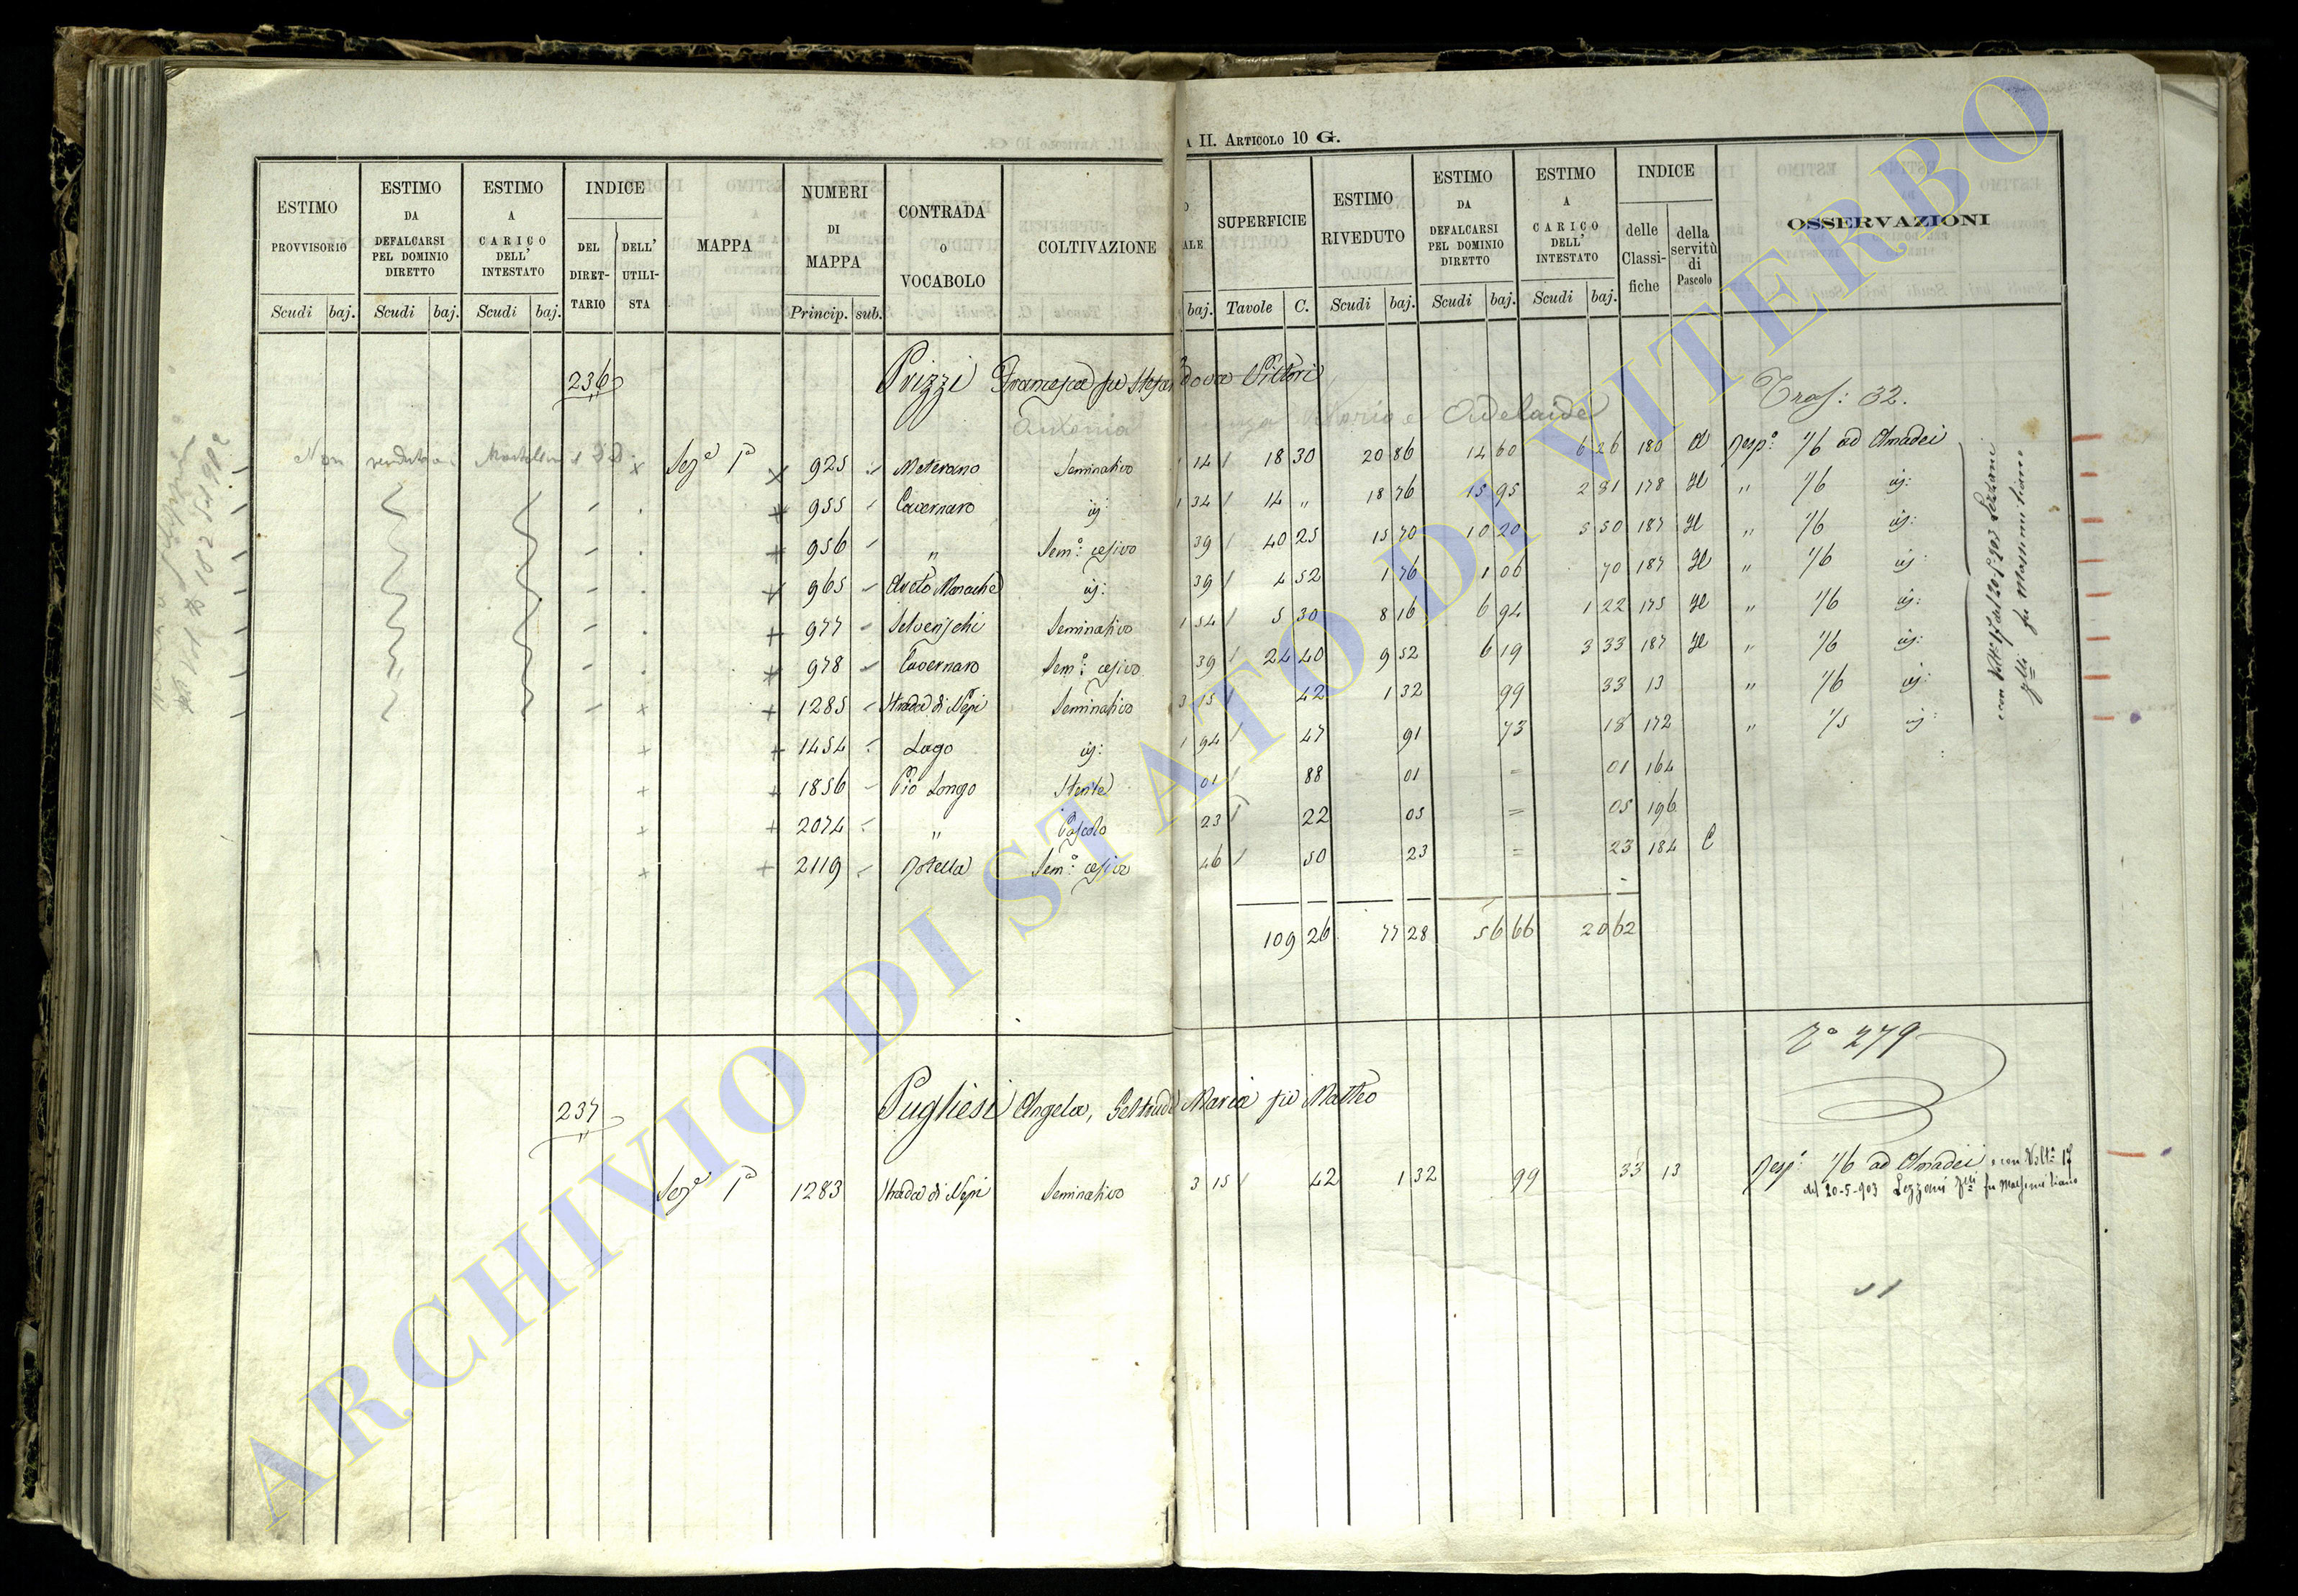 A II. ARTICOLO 10 G.
ESTIMO PROVVISORIO Scudi baj.
ESTIMO DA DEFALCARSI PEL DOMINIO DIRETTO Scudi baj.
ESTIMO A CARICO DELL' INTESTATO Scudi baj.
INDICE DEL DIRETTARIO DELL' UTILISTA
MAPPA
NUMERI DI MAPPA Princip. sub.
CONTRADA o VOCABOLO
COLTIVAZIONE
ALE baj.
SUPERFICIE Tavole C.
ESTIMO RIVEDUTO Scudi baj.
ESTIMO DA DEFALCARSI PEL DOMINIO DIRETTO Scudi baj.
ESTIMO A CARICO DELL' INTESTATO Scudi baj.
INDICE delle Classifiche della servitù di Pascolo
OSSERVAZIONI
236 Prizzi Francesca fu dova Vittori
Antonia Maria e Adelaide Tras: 32.
Non Seza 1a 925 Meterano Seminativo 1 14 18 30 20 86 14 60 6 26 180 A Resp: 1/6 ad Amadei
955 Cavernaro id: 1 34 14 " 18 76 15 95 2 81 178 " 1/6 id:
956 " Sem: cesivo 39 40 25 15 70 10 20 5 50 187 " 1/6 id:
965 id: 39 4 52 1 76 1 06 70 187 " 1/6 id:
977 Selvenschi Seminativo 1 54 5 30 8 16 6 94 1 22 175 " 1/6 id:
978 Cavernaro Sem: cesivo 39 24 40 9 52 6 19 3 33 187 " 1/6 id:
1285 Strada di Nepi Seminativo 3 15 42 1 32 99 33 13 " 1/6 id:
1454 Lago id: 1 94 47 91 73 18 172 " 1/5 id:
1856 Pio Longo Sterile 01 88 01 = 01 164
2074 " Pascolo 23 22 05 = 05 196
2119 Rotella Sem: cesivo 46 50 23 = 23 184 C
109 26 77 28 56 66 20 62
con Volta 17 del 20-5-903 Lezzani
fu Massimiliano
Ra 279
237 Pugliesi Angela, Geltrude Maria fu Matteo
Seza 1a 1283 Strada di Nepi Seminativo 3 15 42 1 32 99 33 13 Resp: 1/6 ad Amadei e con Volta 17
del 20-5-903 Lezzani fu Massimiliano
51
ARCHIVIO DI STATO DI VITERBO